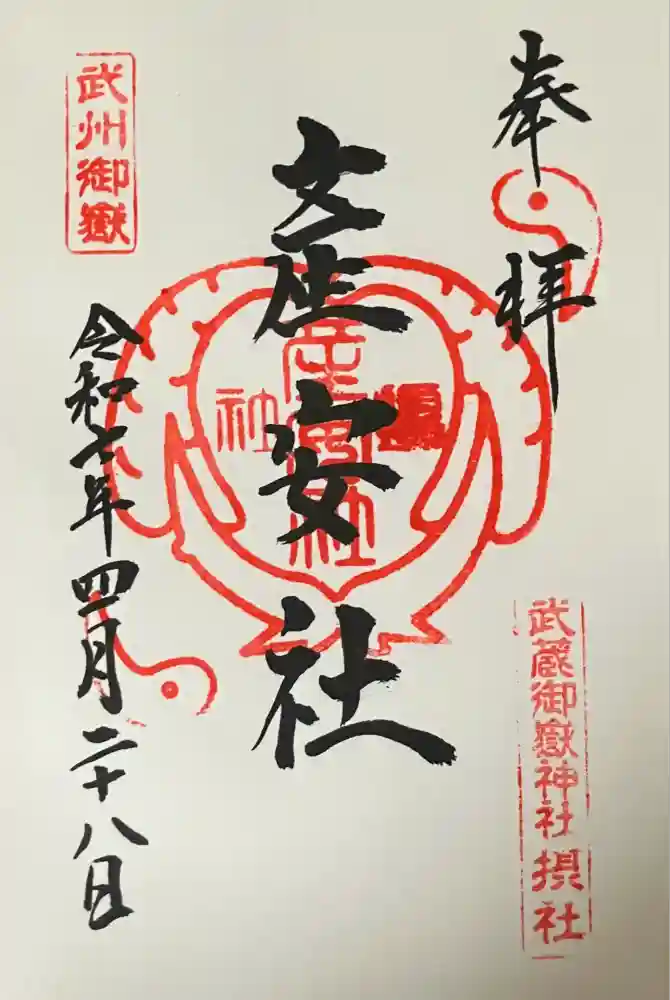 奉拝
武蔵御嶽神社摂社
産安社
摂社
産安社
武州御嶽
令和七年四月二十八日